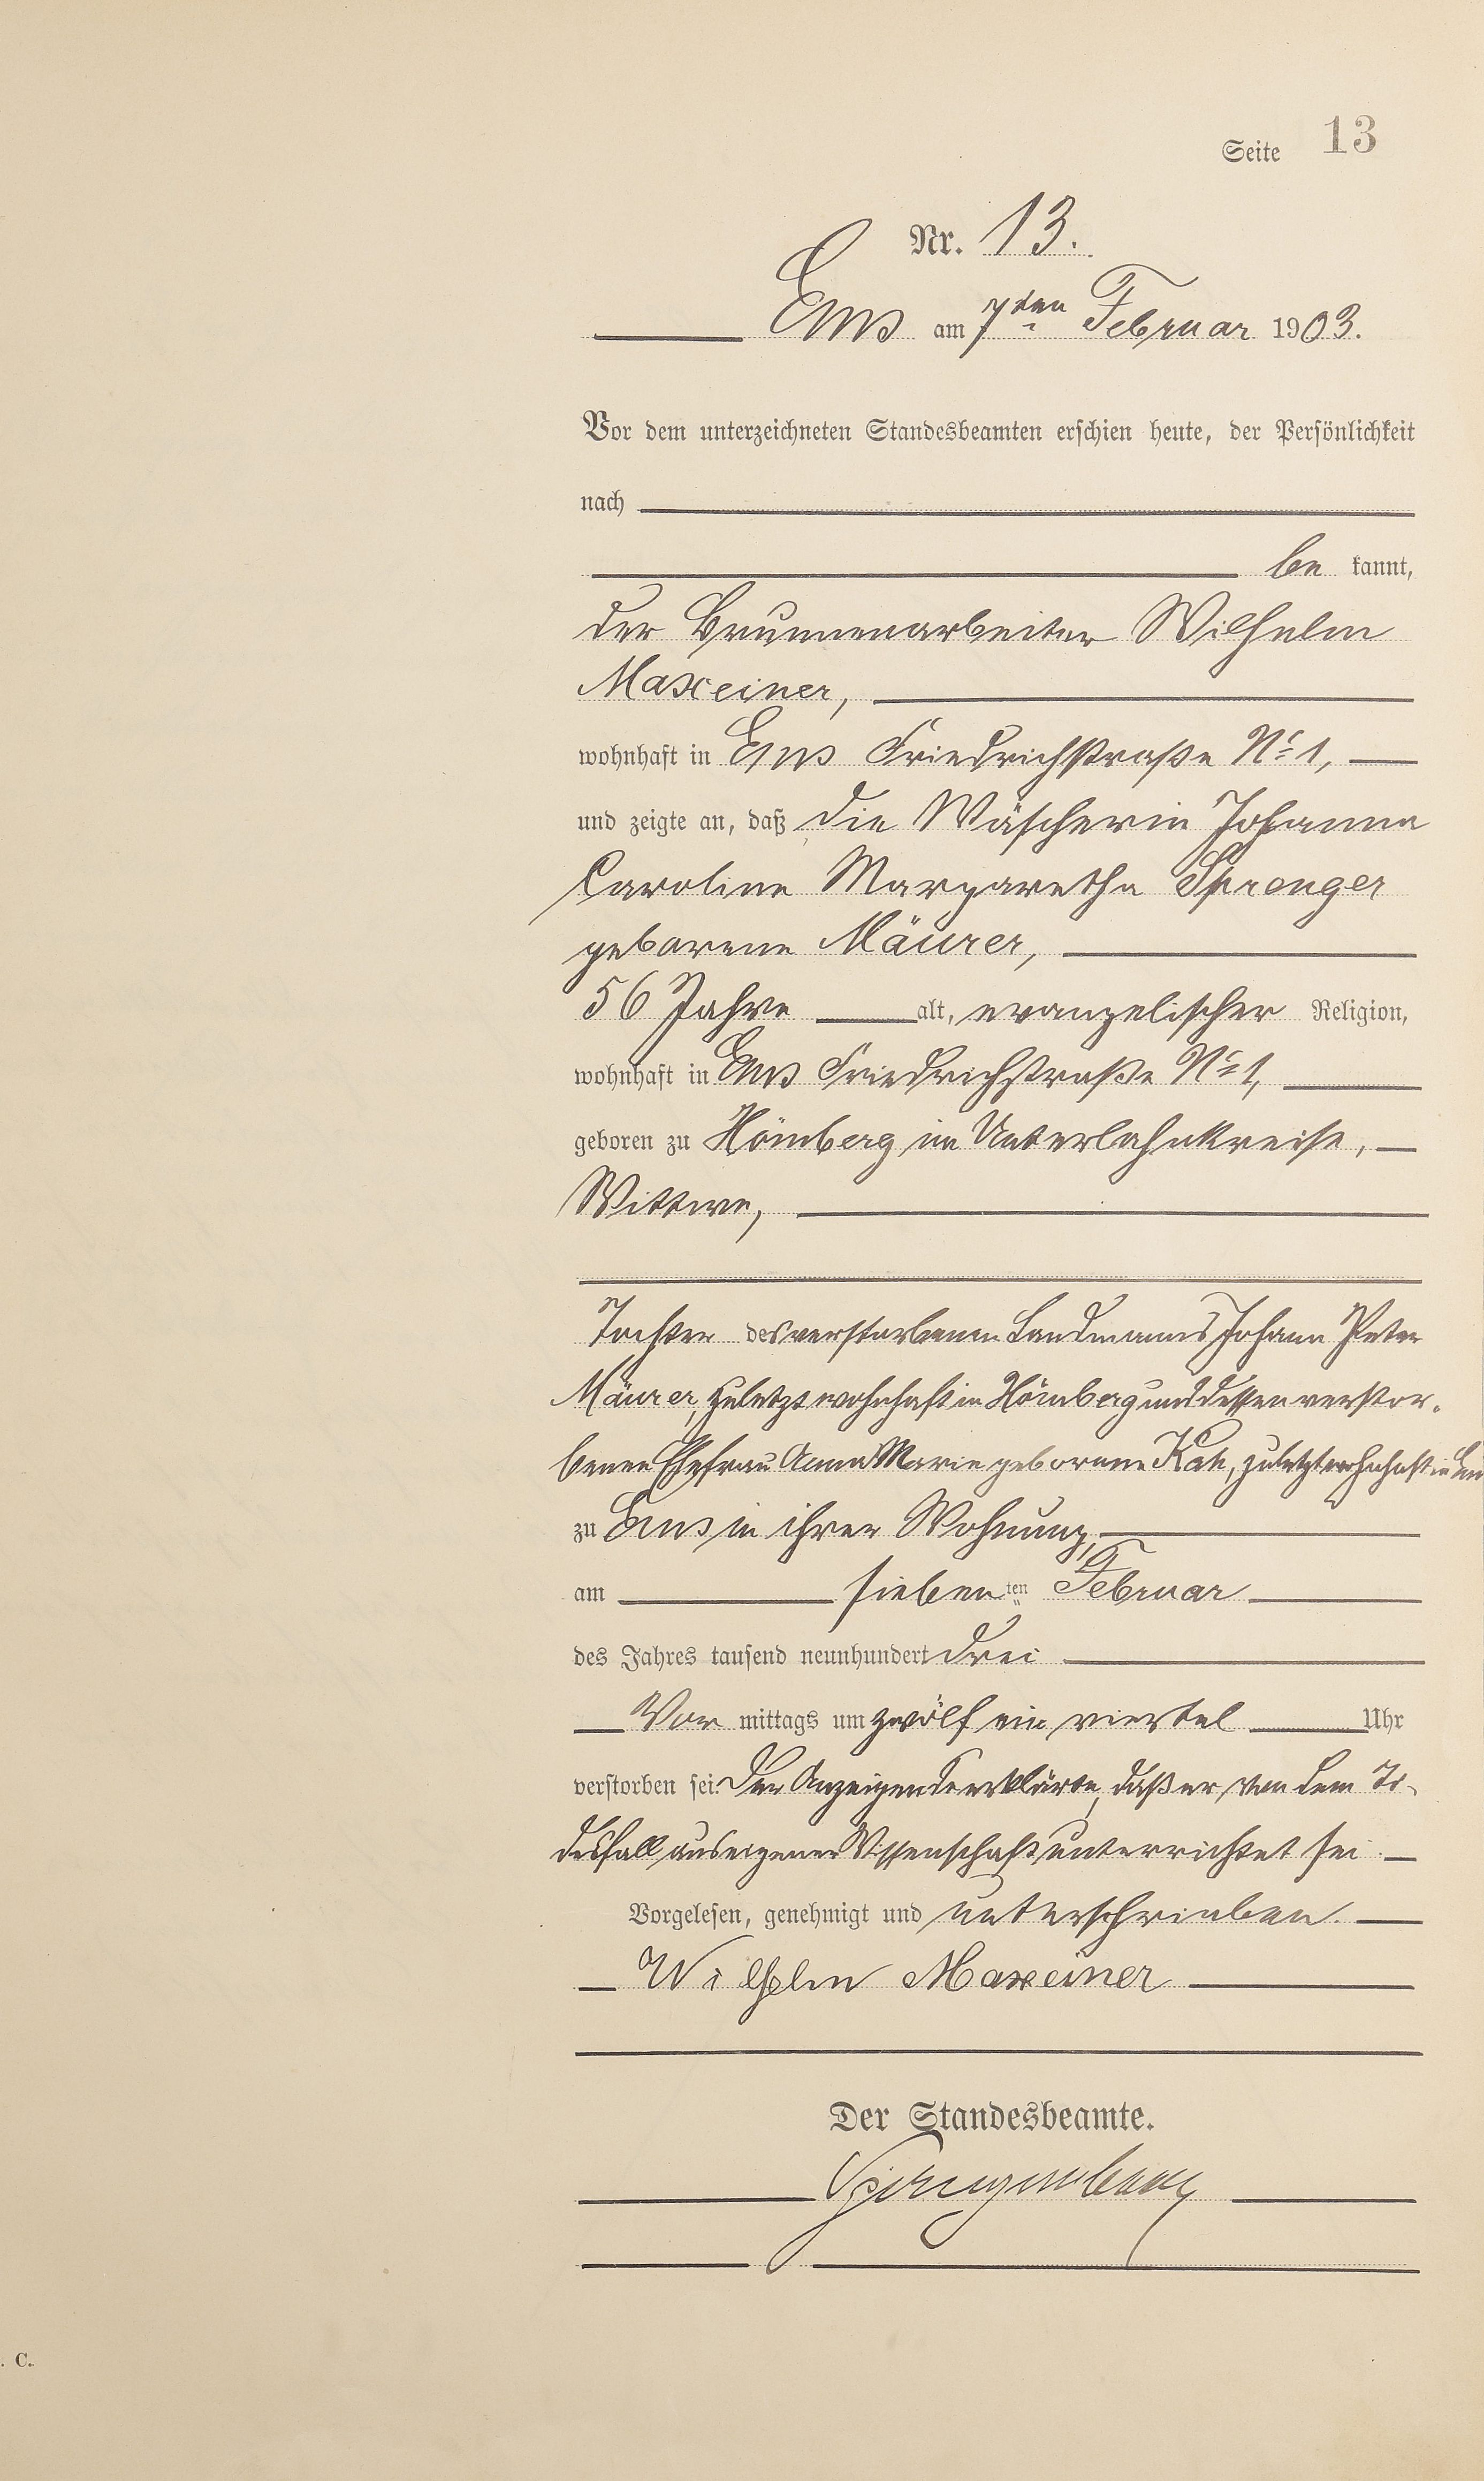 Seite 13
Nr. 13.
Ems am 7ten Februar 1903.
Vor dem unterzeichneten Standesbeamten erschien heute, der Persönlichkeit
nach
be kannt,
der Brunnenarbeiter Wilhelm
Maxeiner,
wohnhaft in Ems Friedrichstraße No 1,
und zeigte an, daß die Wäscherin Johanna
Caroline Margaretha Sprenger
geborene Mäurer,
56 Jahre alt, evangelischer Religion,
wohnhaft in Ems Friedrichstraße No 1,
geboren zu Hömberg im Unterlahnkreise,
Wittwe,
Tochter des verstorbenen Landmanns Johann Peter
Mäurer, zuletzt wohnhaft in Hömberg und dessen verstor-
benen Ehefrau Anna Marie geborene, zuletzt wohnhaft in
zu Ems in ihrer Wohnung,
am siebenten Februar
des Jahres tausend neunhundert drei
Vor mittags um zwölf ein viertel Uhr
verstorben sei. Der Anzeigende erklärte, daß er von dem To-
desfall aus eigener Wissenschaft unterrichtet sei.
Vorgelesen, genehmigt und unterschrieben.
Wilhelm Maxeiner
Der Standesbeamte.
. C.